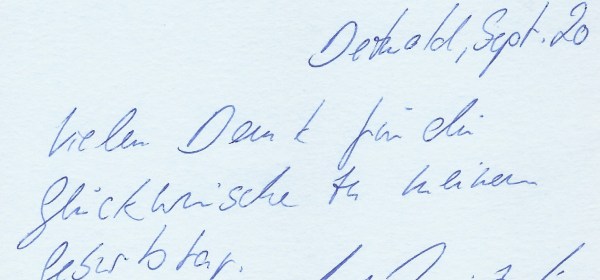 Detmold, Sept. 20
Vielen Dank für die
Glückwünsche zu meinem
Geburtstag.